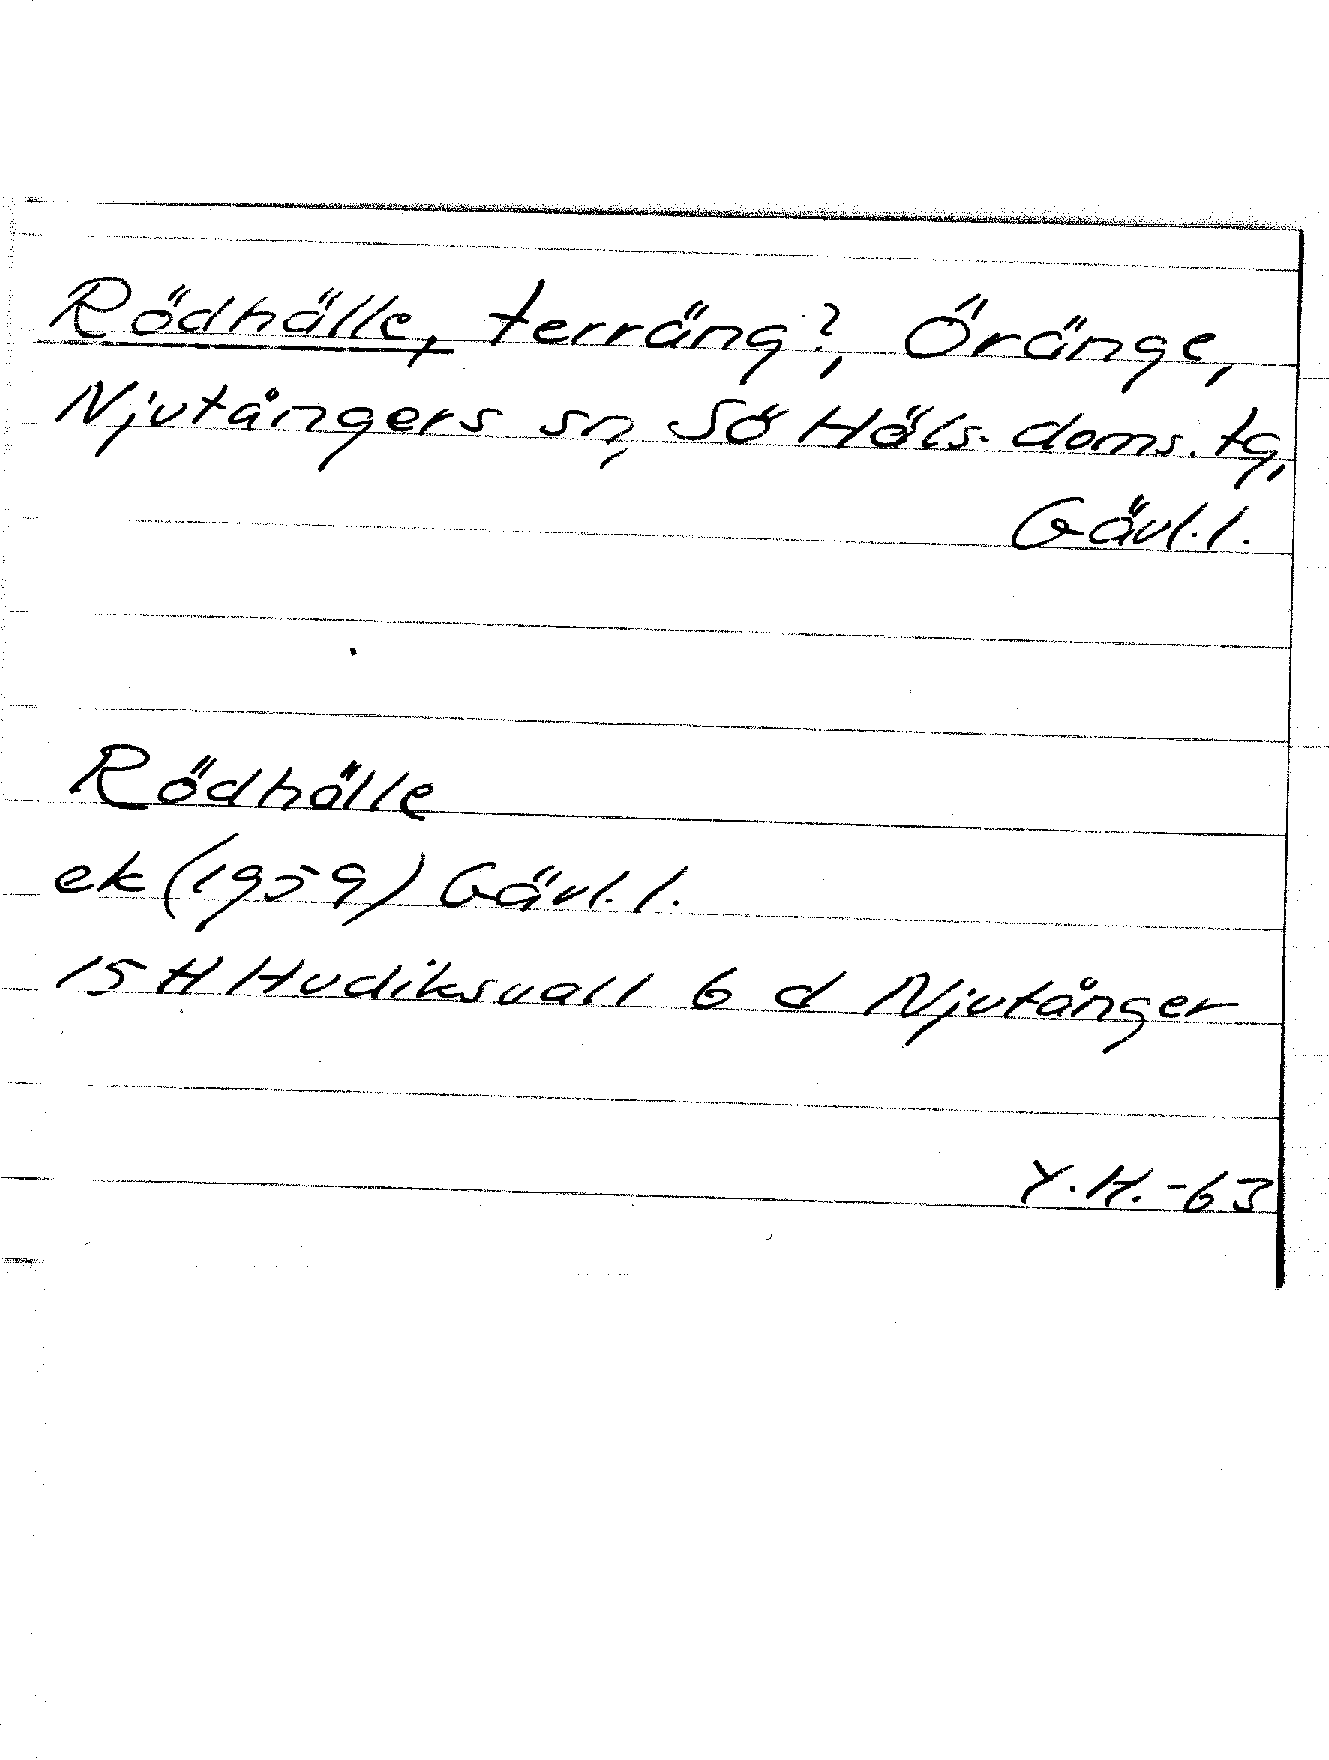 Rödhälle, terräng?, Öränge,
Njutångers sn, Sö Häls. doms. tg,
Gävl. l.
Rödhälle
ek (1959) Gävl. l.
15 H Hudiksvall 6 d Njutånger
Y.H. -63